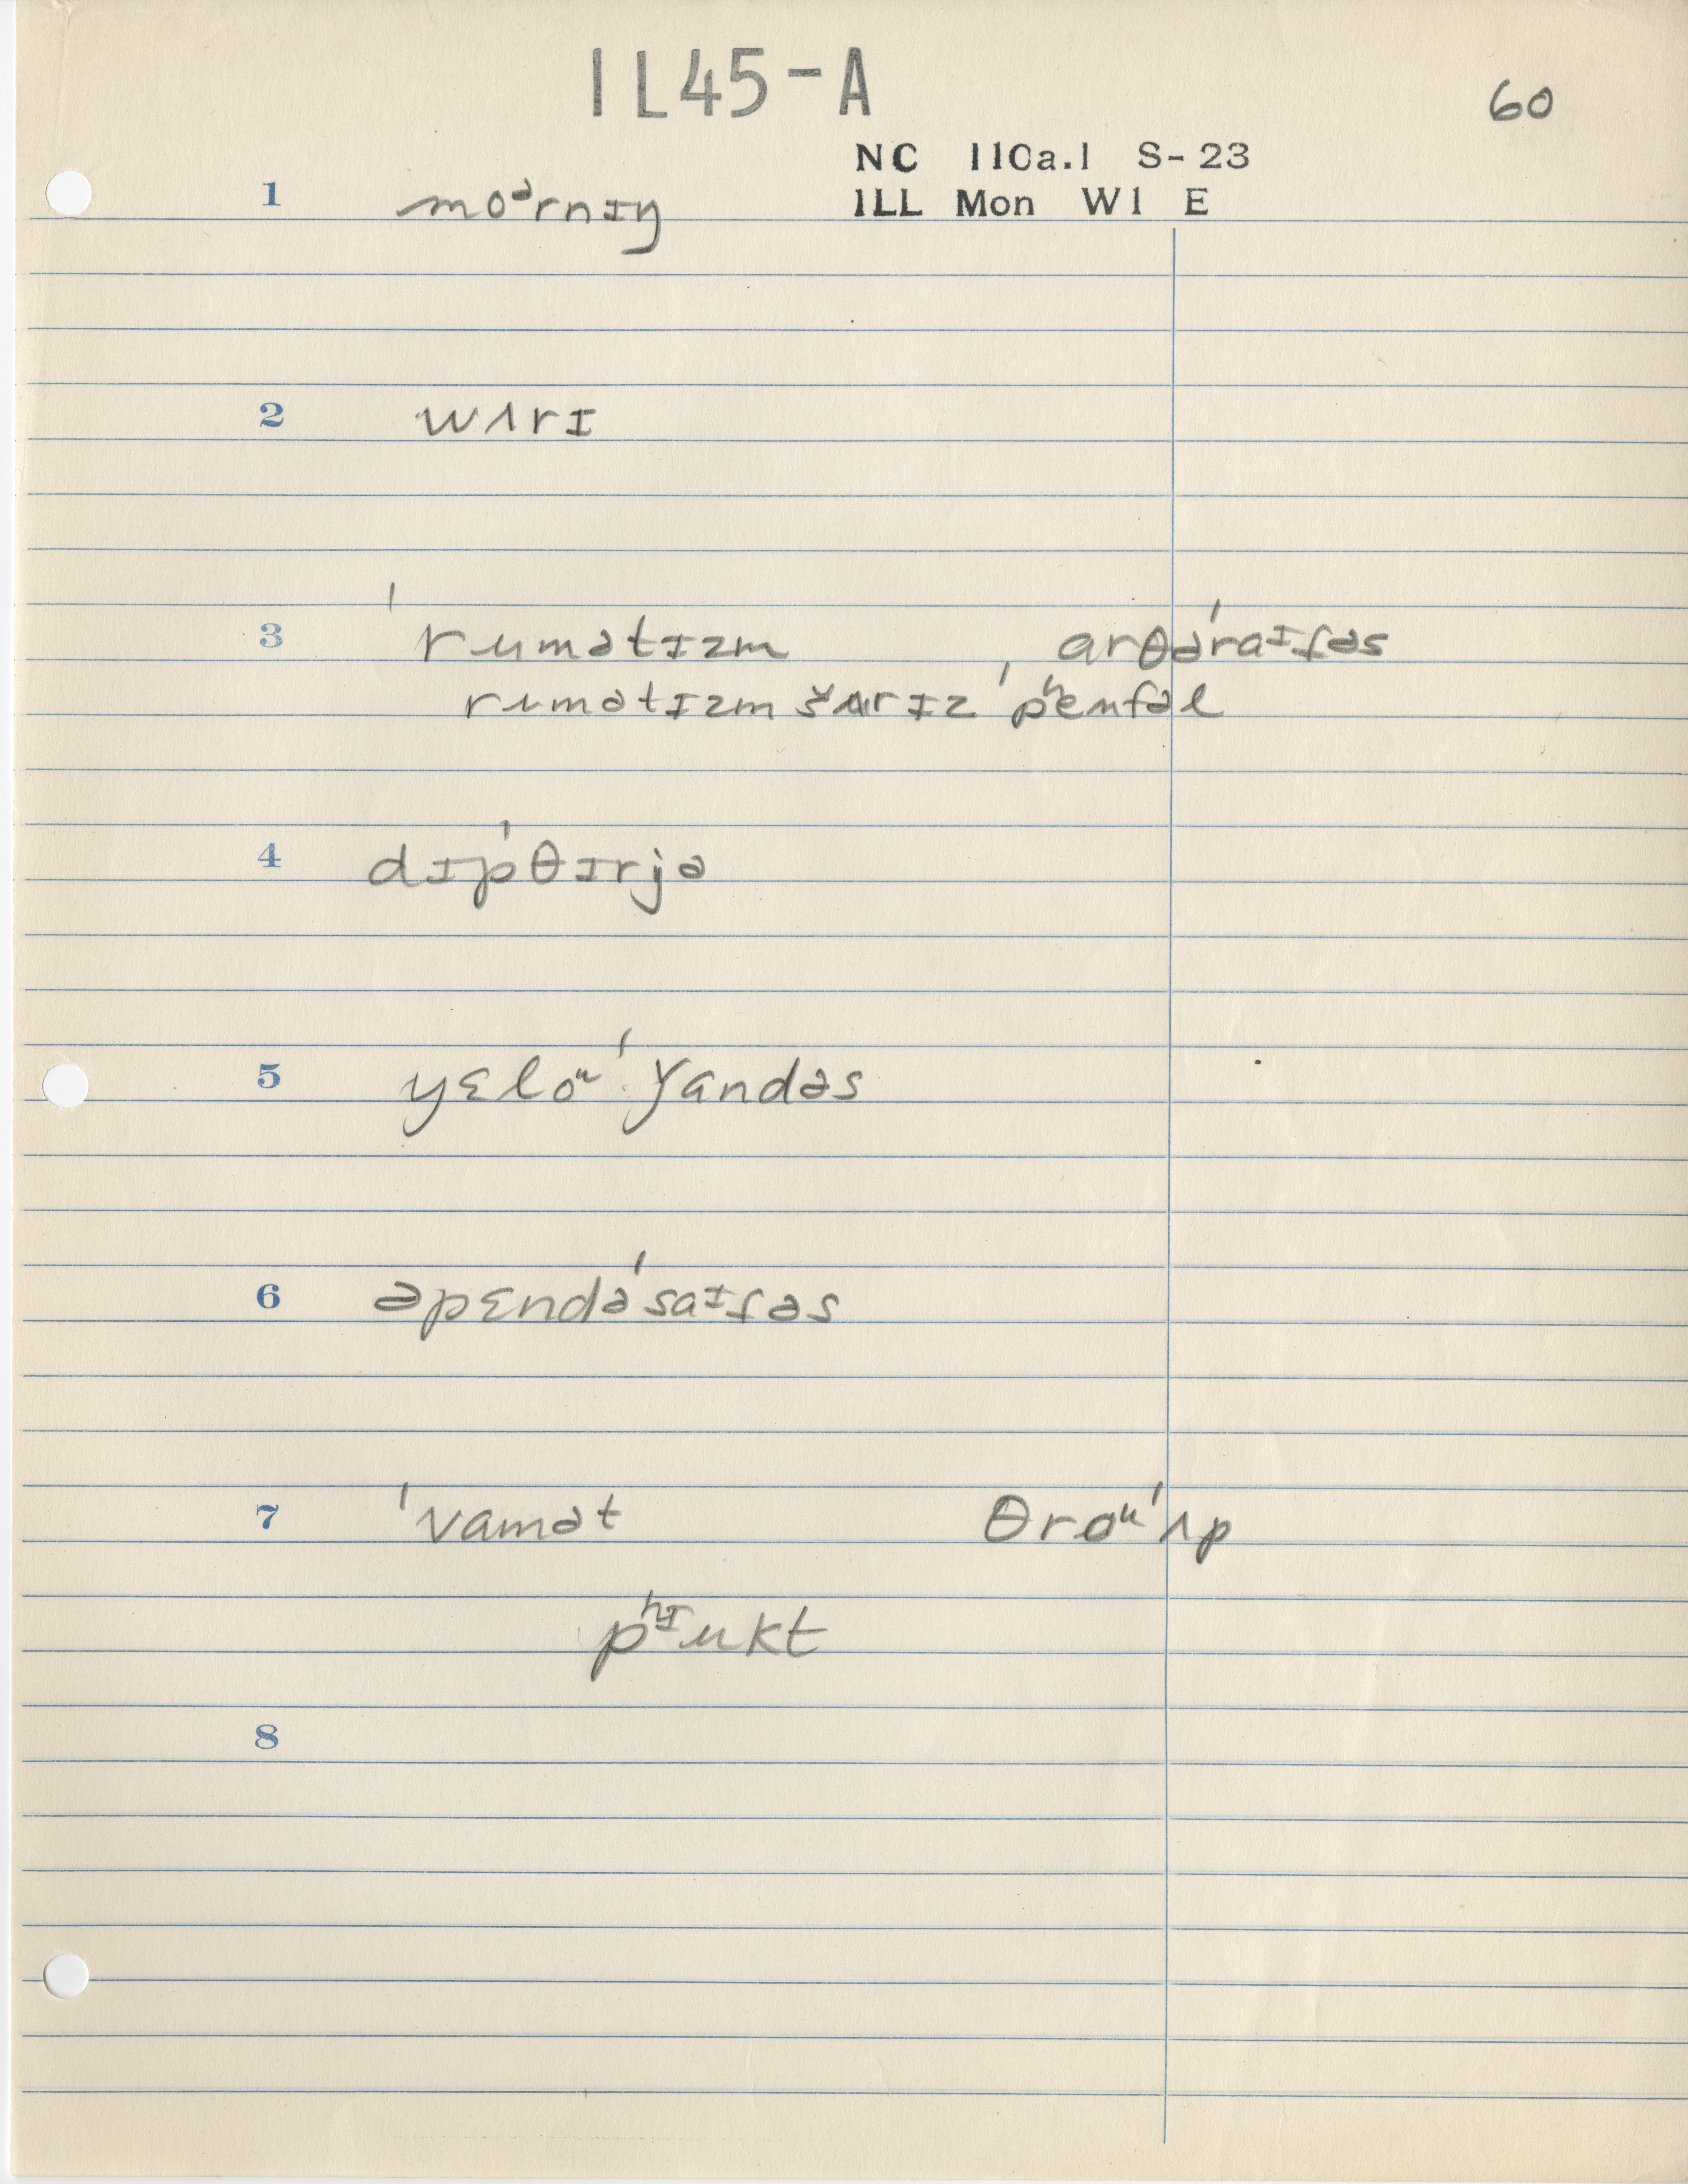 IL45-A
60
NC 110a.1 S-23
ILL Mon W1 E
1 moᵊrnɪŋ
2 wʌrɪ
3 ˈrumətɪzm arθəˈraɪt̬əs
rumətɪzm šurɪz ˈpʰeɪnfəl
4 dɪpˈθɪrjə
5 yɛloᵘ ˈǰandəs
6 əpɛndəˈsaᶦt̬əs
7 ˈvamət θroᵘˈʌp
pʰᶦukt
8